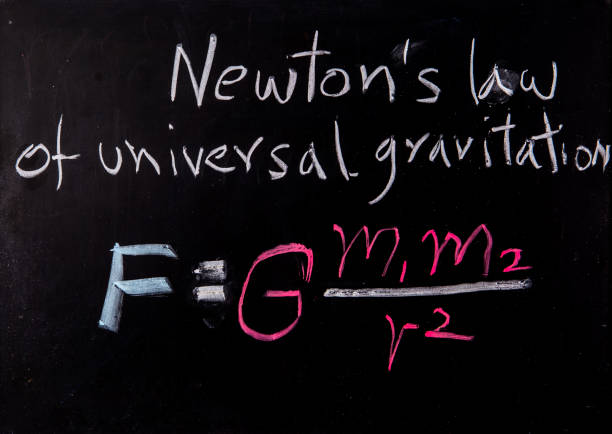 Newton's law
of universal gravitation
F = G m₁m₂ / r²